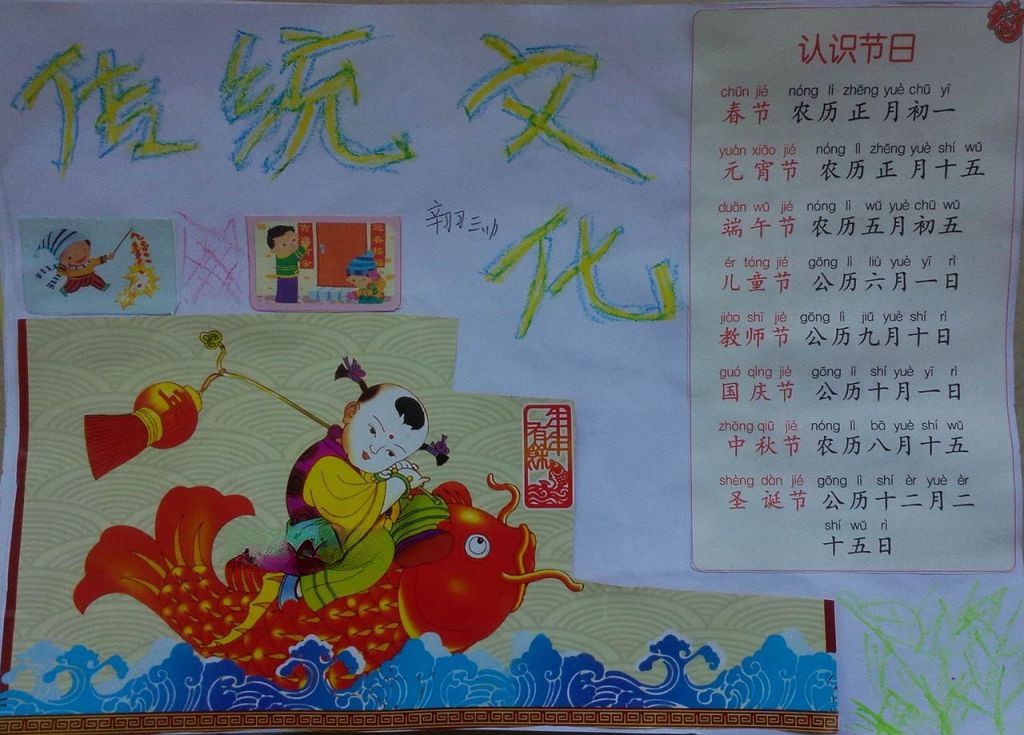 传统文
化
认识节日
chūn jié nóng lì zhēng yuè chū yī
春节 农历正月初一
yuán xiāo jié nóng lì zhēng yuè shí wǔ
元宵节 农历正月十五
duān wǔ jié nóng lì wǔ yuè chū wǔ
端午节 农历五月初五
ér tóng jié gōng lì liù yuè yī rì
儿童节 公历六月一日
jiào shī jié gōng lì jiǔ yuè shí rì
教师节 公历九月十日
guó qìng jié gōng lì shí yuè yī rì
国庆节 公历十月一日
zhōng qiū jié nóng lì bā yuè shí wǔ
中秋节 农历八月十五
shèng dàn jié gōng lì shí èr yuè èr
圣诞节 公历十二月二
shí wǔ rì
十五日
年年
有餘